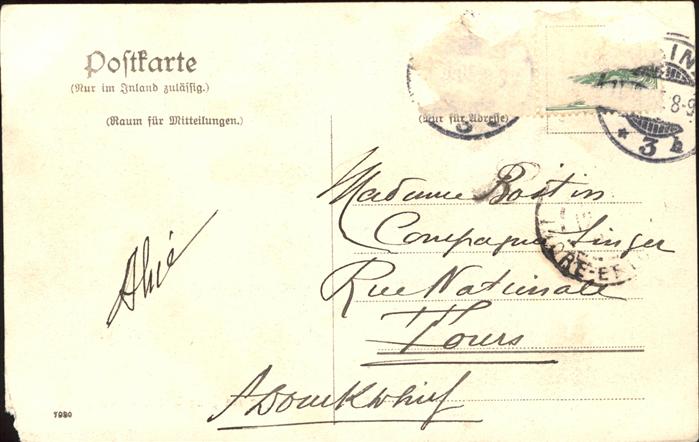 Postkarte
(Nur im Inland zulässig.)
(Raum für Mitteilungen.)
(Nur für Adresse)
8-9
* 3 h
3
Madame Bostin
Compagnie Singer
Rue Nationale
Tours
RE-ET
7980